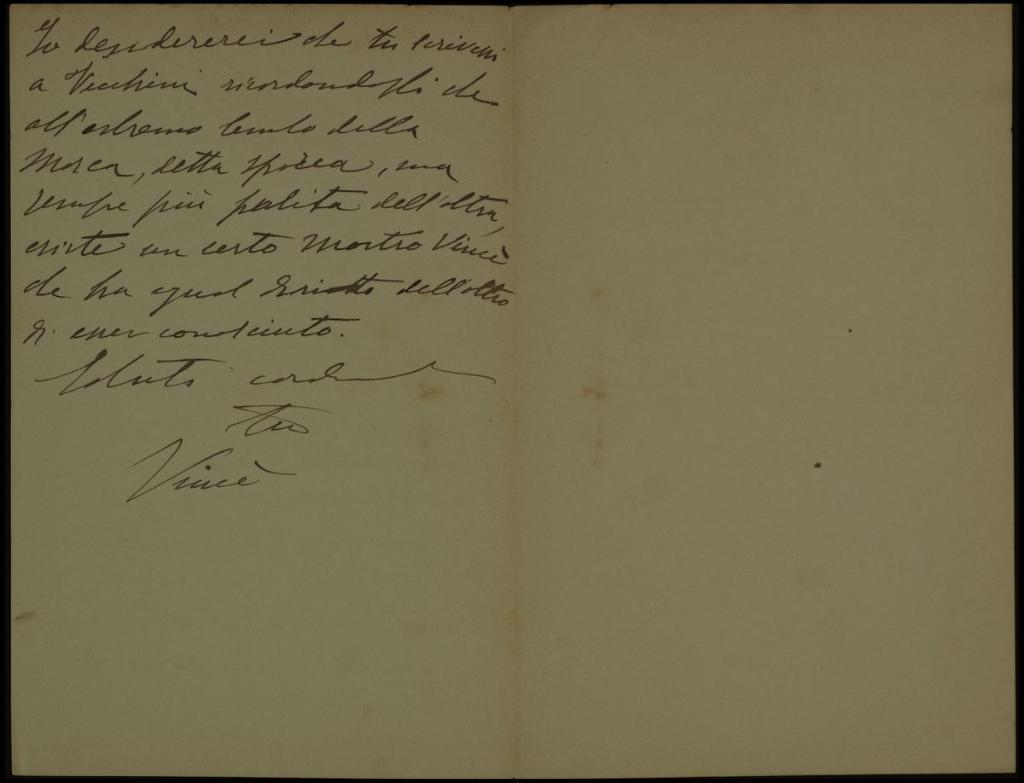 Io desidererei che tu scrivessi
a Vecchini ricordandogli che
all'estremo lembo della
Marca, detta sporca, ma
sempre più pulita dell'altra,
esiste un certo Mastro Vincè
che ha egual diritto dell'altro
di esser conosciuto.
Saluti cordiali
tuo
Vincè